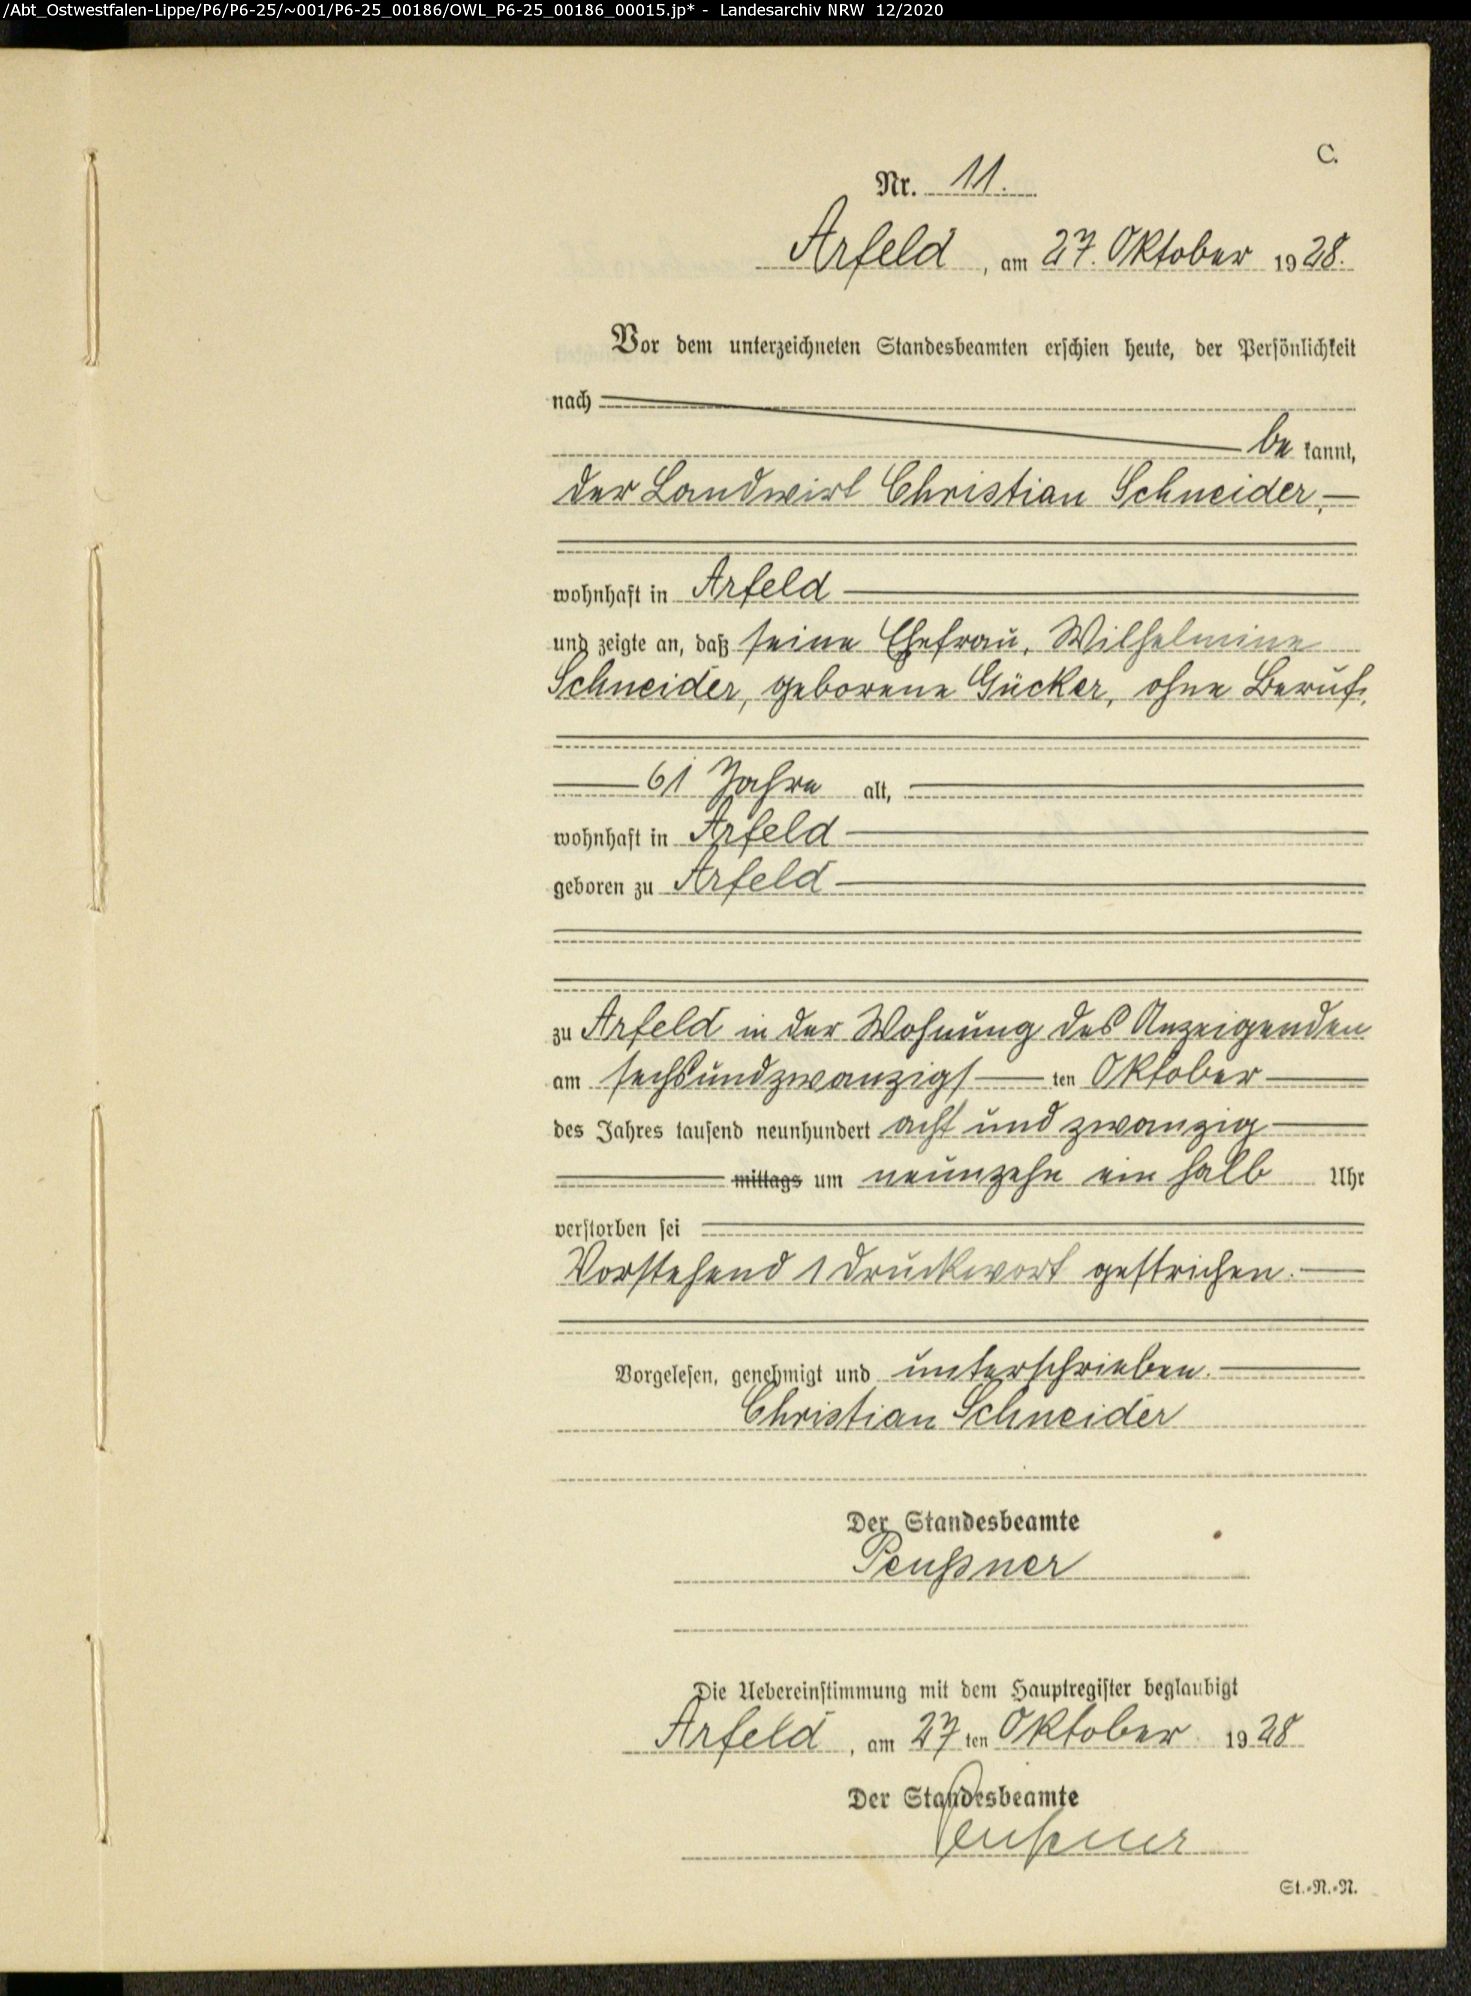 /Abt_Ostwestfalen-Lippe/P6/P6-25/~001/P6-25_00186/OWL_P6-25_00186_00015.jp* - Landesarchiv NRW 12/2020
C.
Nr. 11.
Arfeld, am 27. Oktober 1928.
Vor dem unterzeichneten Standesbeamten erschien heute, der Persönlichkeit
nach
be kannt,
der Landwirt Christian Schneider,
wohnhaft in Arfeld
und zeigte an, daß seine Ehefrau, Wilhelmine
Schneider, geborene Gücker, ohne Beruf,
61 Jahre alt,
wohnhaft in Arfeld
geboren zu Arfeld
zu Arfeld in der Wohnung des Anzeigenden
am sechsundzwanzigs ten Oktober
des Jahres tausend neunhundert acht und zwanzig
mittags um neunzehn ein halb Uhr
verstorben sei
Vorstehend 1 Druckwort gestrichen.
Vorgelesen, genehmigt und unterschrieben.
Christian Schneider
Der Standesbeamte
Peußner
Die Uebereinstimmung mit dem Hauptregister beglaubigt
Arfeld, am 27 ten Oktober 1928
Der Standesbeamte
Peußner
St.-R.-N.